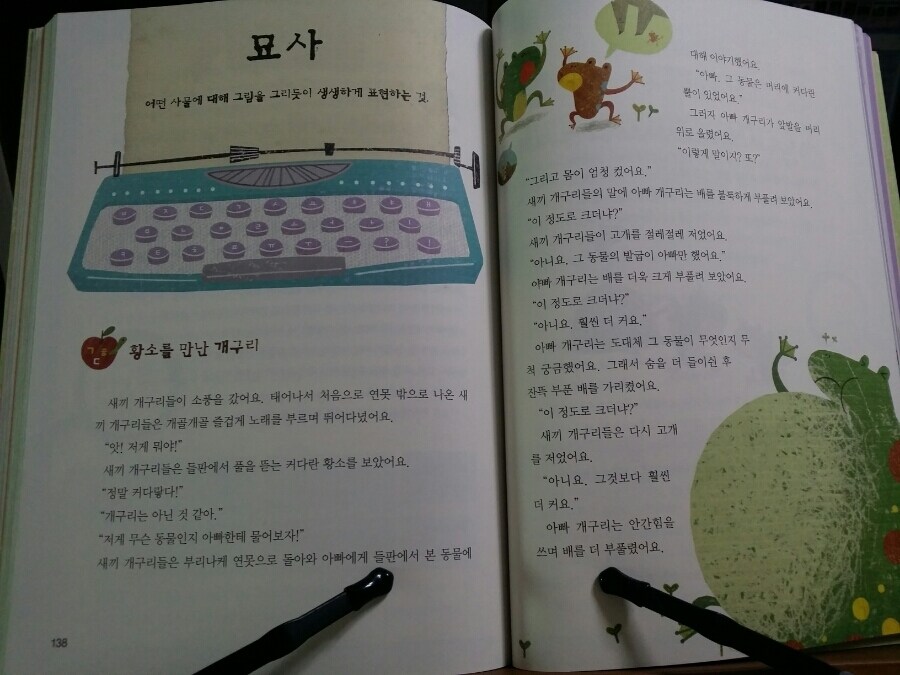 묘사
어떤 사물에 대해 그림을 그리듯이 생생하게 표현하는 것.
황소를 만난 개구리
새끼 개구리들이 소풍을 갔어요. 태어나서 처음으로 연못 밖으로 나온 새
끼 개구리들은 개골개골 즐겁게 노래를 부르며 뛰어다녔어요.
“앗! 저게 뭐야!”
새끼 개구리들은 들판에서 풀을 뜯는 커다란 황소를 보았어요.
“정말 커다랗다!”
“개구리는 아닌 것 같아.”
“저게 무슨 동물인지 아빠한테 물어보자!”
새끼 개구리들은 부리나케 연못으로 돌아와 아빠에게 들판에서 본 동물에
138
대해 이야기했어요.
“아빠, 그 동물은 머리에 커다란
뿔이 있었어요.”
그러자 아빠 개구리가 앞발을 머리
위로 올렸어요.
“이렇게 말이지? 또?”
“그리고 몸이 엄청 컸어요.”
새끼 개구리들의 말에 아빠 개구리는 배를 볼록하게 부풀려 보았어요.
“이 정도로 크더냐?”
새끼 개구리들이 고개를 절레절레 저었어요.
“아니요. 그 동물의 발굽이 아빠만 했어요.”
아빠 개구리는 배를 더욱 크게 부풀려 보았어요.
“이 정도로 크더냐?”
“아니요. 훨씬 더 커요.”
아빠 개구리는 도대체 그 동물이 무엇인지 무
척 궁금했어요. 그래서 숨을 더 들이쉰 후
잔뜩 부푼 배를 가리켰어요.
“이 정도로 크더냐?”
새끼 개구리들은 다시 고개
를 저었어요.
“아니요. 그것보다 훨씬
더 커요.”
아빠 개구리는 안간힘을
쓰며 배를 더 부풀렸어요.